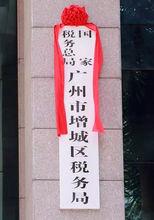 国家
税务总局
广州市增城区税务局